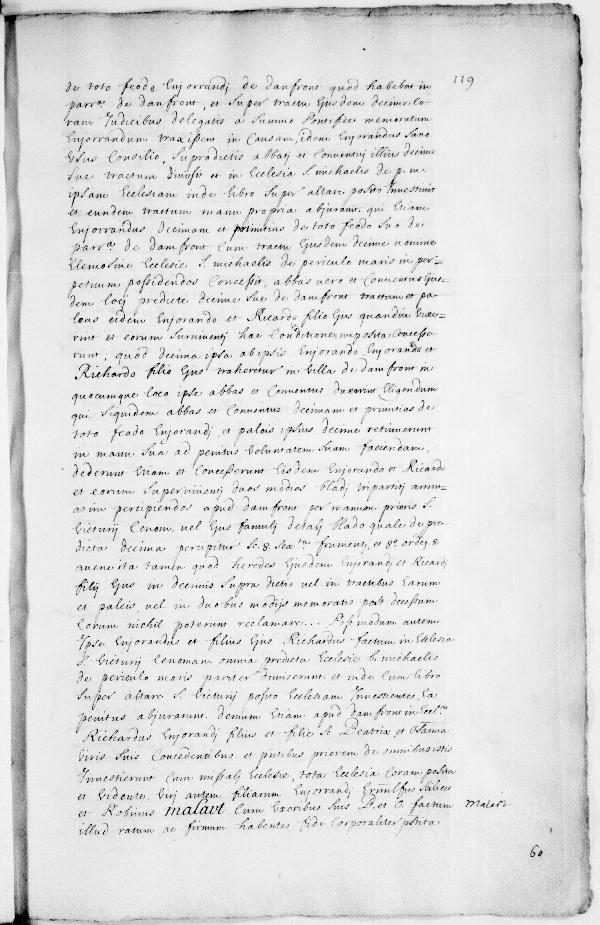 119
de toto feodo Enjorrandj de danfront quod habebat in
parr.a de danfront, et super tractu Ejusdem decime co
ram Judicibus delegatis a Summo Pontifice memoratum
Enjorrandum traxissent in Causam, idem Enjorandus Sano
Usus Consilio, Supradictis abbatj et Conventuj illius decime
sue tractum Dimisit et in Ecclesia S. michaelis de p. m.
ipsam Ecclesiam inde libro Super altare posito Investivit
et eundem tractum manu propria abjuravit. qui Etiam
Enjorrandus decimam et primitias de toto feodo Suo de
parr.a de damfront Cum tractu Ejusdem decime nomine
Elemosine Ecclesie S. michaelis de periculo maris in per=
petuum possidendos Concessit, abbas vero et Conventus Ejus=
dem locj predicte decime sue de damfront tractum et pa
leas eidem Enjorando et Ricardo filio Ejus quandiu vixe=
rint et eorum Survivientj hac Conditione imposita Concesse
runt, quod decima ipsa ab ipsis Enjorando Enjorando et
Richardo filio Ejus traheretur in Villa de damfront in
quocumque loco ipse abbas et Conventus duxerint Eligendum
qui Siquidem abbas et Conventus decimam et primitias de
toto feodo Enjorandj et paleis ipsius decime retinuerunt
in manu Sua ad penitus Voluntatem Suam faciendam.
dederunt Etiam et Concesserunt Eisdem Enjorando et Ricardo
et eorum Superviventj duos modios bladj tripartitj annu=
atim percipiendos apud damfront per manum prioris S.
Victurij Cenom. vel Ejus famulj de talj blado quale de pre
dicta decima percipitur Sc. 8 Sex.ta frumentj, et 8.o ordej 8
avene ita tamen quod heredes Ejusdem Enjorandj et Ricardj
filij Ejus in decimis Supra dictis vel in tractibus Earum
et paleis vel in duobus modijs memoratis post decessum
Eorum nichil poterunt reclamare... Postmodum autem
Ipse Enjorandus et filius Ejus Richardus factum in Ecclesia
S. Victurij Cenomam. omnia predicta Ecclesie b. michaelis
de periculo maris pariter dimiserunt et inde Cum libro
Super altare S. Victurij posito Ecclesiam Investientes, Ea
penitus abjurarunt. demum Etiam apud damfront in Eccl.a
Richardus Enjorandj filius et filie Sc Beatrix et Osanna
Viris Suis Concedentibus et priorem de omnibus istis
Investierunt Cum missalj Ecclesie, tota Ecclesia Coram posita
et Vidente. Virj autem filiarum Enjorrandj Ernulfus Salices
et Robinus malart Cum Uxoribus Suis B. et O. factum
malart
illud ratum ac firmum habentes fide Corporaliter pstita
60